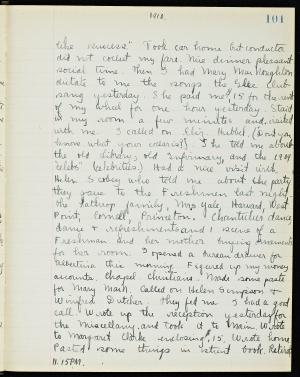 1918.
101
like nemesis." Took car home but conductor
did not collect my fare. Nice dinner pleasant
social time. Then I had Mary MacNaughton
dictate to me the songs the Glee Club
sang yesterday. She paid me .15 for the rent
of my wheel for one hour yesterday. Staid
in my room a few minutes and visited
with me. I called on Eliz. Hubbel. (Dont you
know what your colors is?) She told me about
the old library, old infirmary, and the 1909
"celebs" (celebrities). Had a nice visit with
Helen who told me about the party
they gave to the Freshmen last night
the Lathrop family, Mrs Yale, Harvard, West
Point, Cornell, Princeton. Chantecler dance
dance & refreshments and 1 scene of a
Freshman and her mother buying
for her room. I opened a bureau drawer for
Albertina this morning. Figured up my money
accounts. Chapel Christians. Made some paste
for Mary Mach. Called on Helen Simpson &
Winifred Dutcher. They fed me. I had a good
call. Wrote up the reception yesterday for
the Miscellany and took it to Main. Wrote
to Margaret Clarke enclosing .15. Wrote home.
Pasted some things in student book. Retired
11.15 P.M.